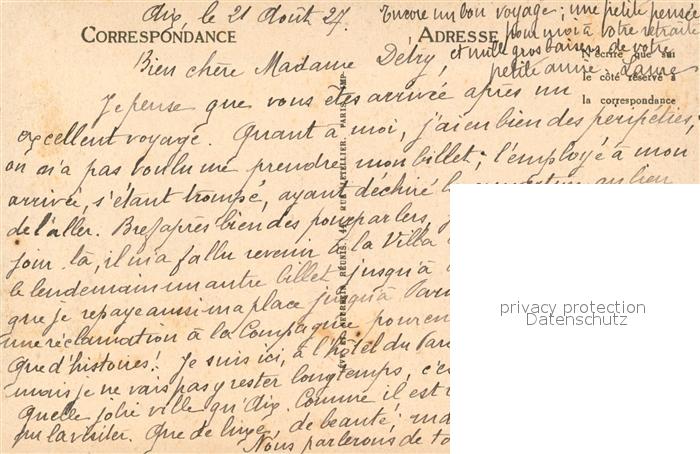 Aix, le 21 Août 27.
CORRESPONDANCE
ADRESSE
Encore un bon voyage; une petite pensée
pour moi à votre retraite
et mille gros baisers de votre
petite amie. Laure
à écrire que sur
le côté réservé à
la correspondance
Bien chère Madame Detry,
Je pense que vous êtes arrivée après un
excellent voyage. Quant à moi, j'ai eu bien des péripéties:
on n'a pas voulu me prendre mon billet; l'employé à mon
arrivée, s'étant trompé, ayant déchiré au lieu
de l'aller. Bref après bien des pourparlers,
jour là, il m'a fallu revenir à la Villa
le lendemain un autre billet jusqu'à
que je repaye aussi ma place jusqu'à
une réclamation à la Compagnie pour
Que d'histoires! Je suis ici, à l'hôtel du
mais je ne vais pas y rester longtemps,
Quelle jolie ville qu'Aix. Comme il est
pu la visiter. Que de luxe, de beauté!
Nous parlerons de
RÉUNIS, RUE LETELLIER, PARIS
privacy protection
Datenschutz